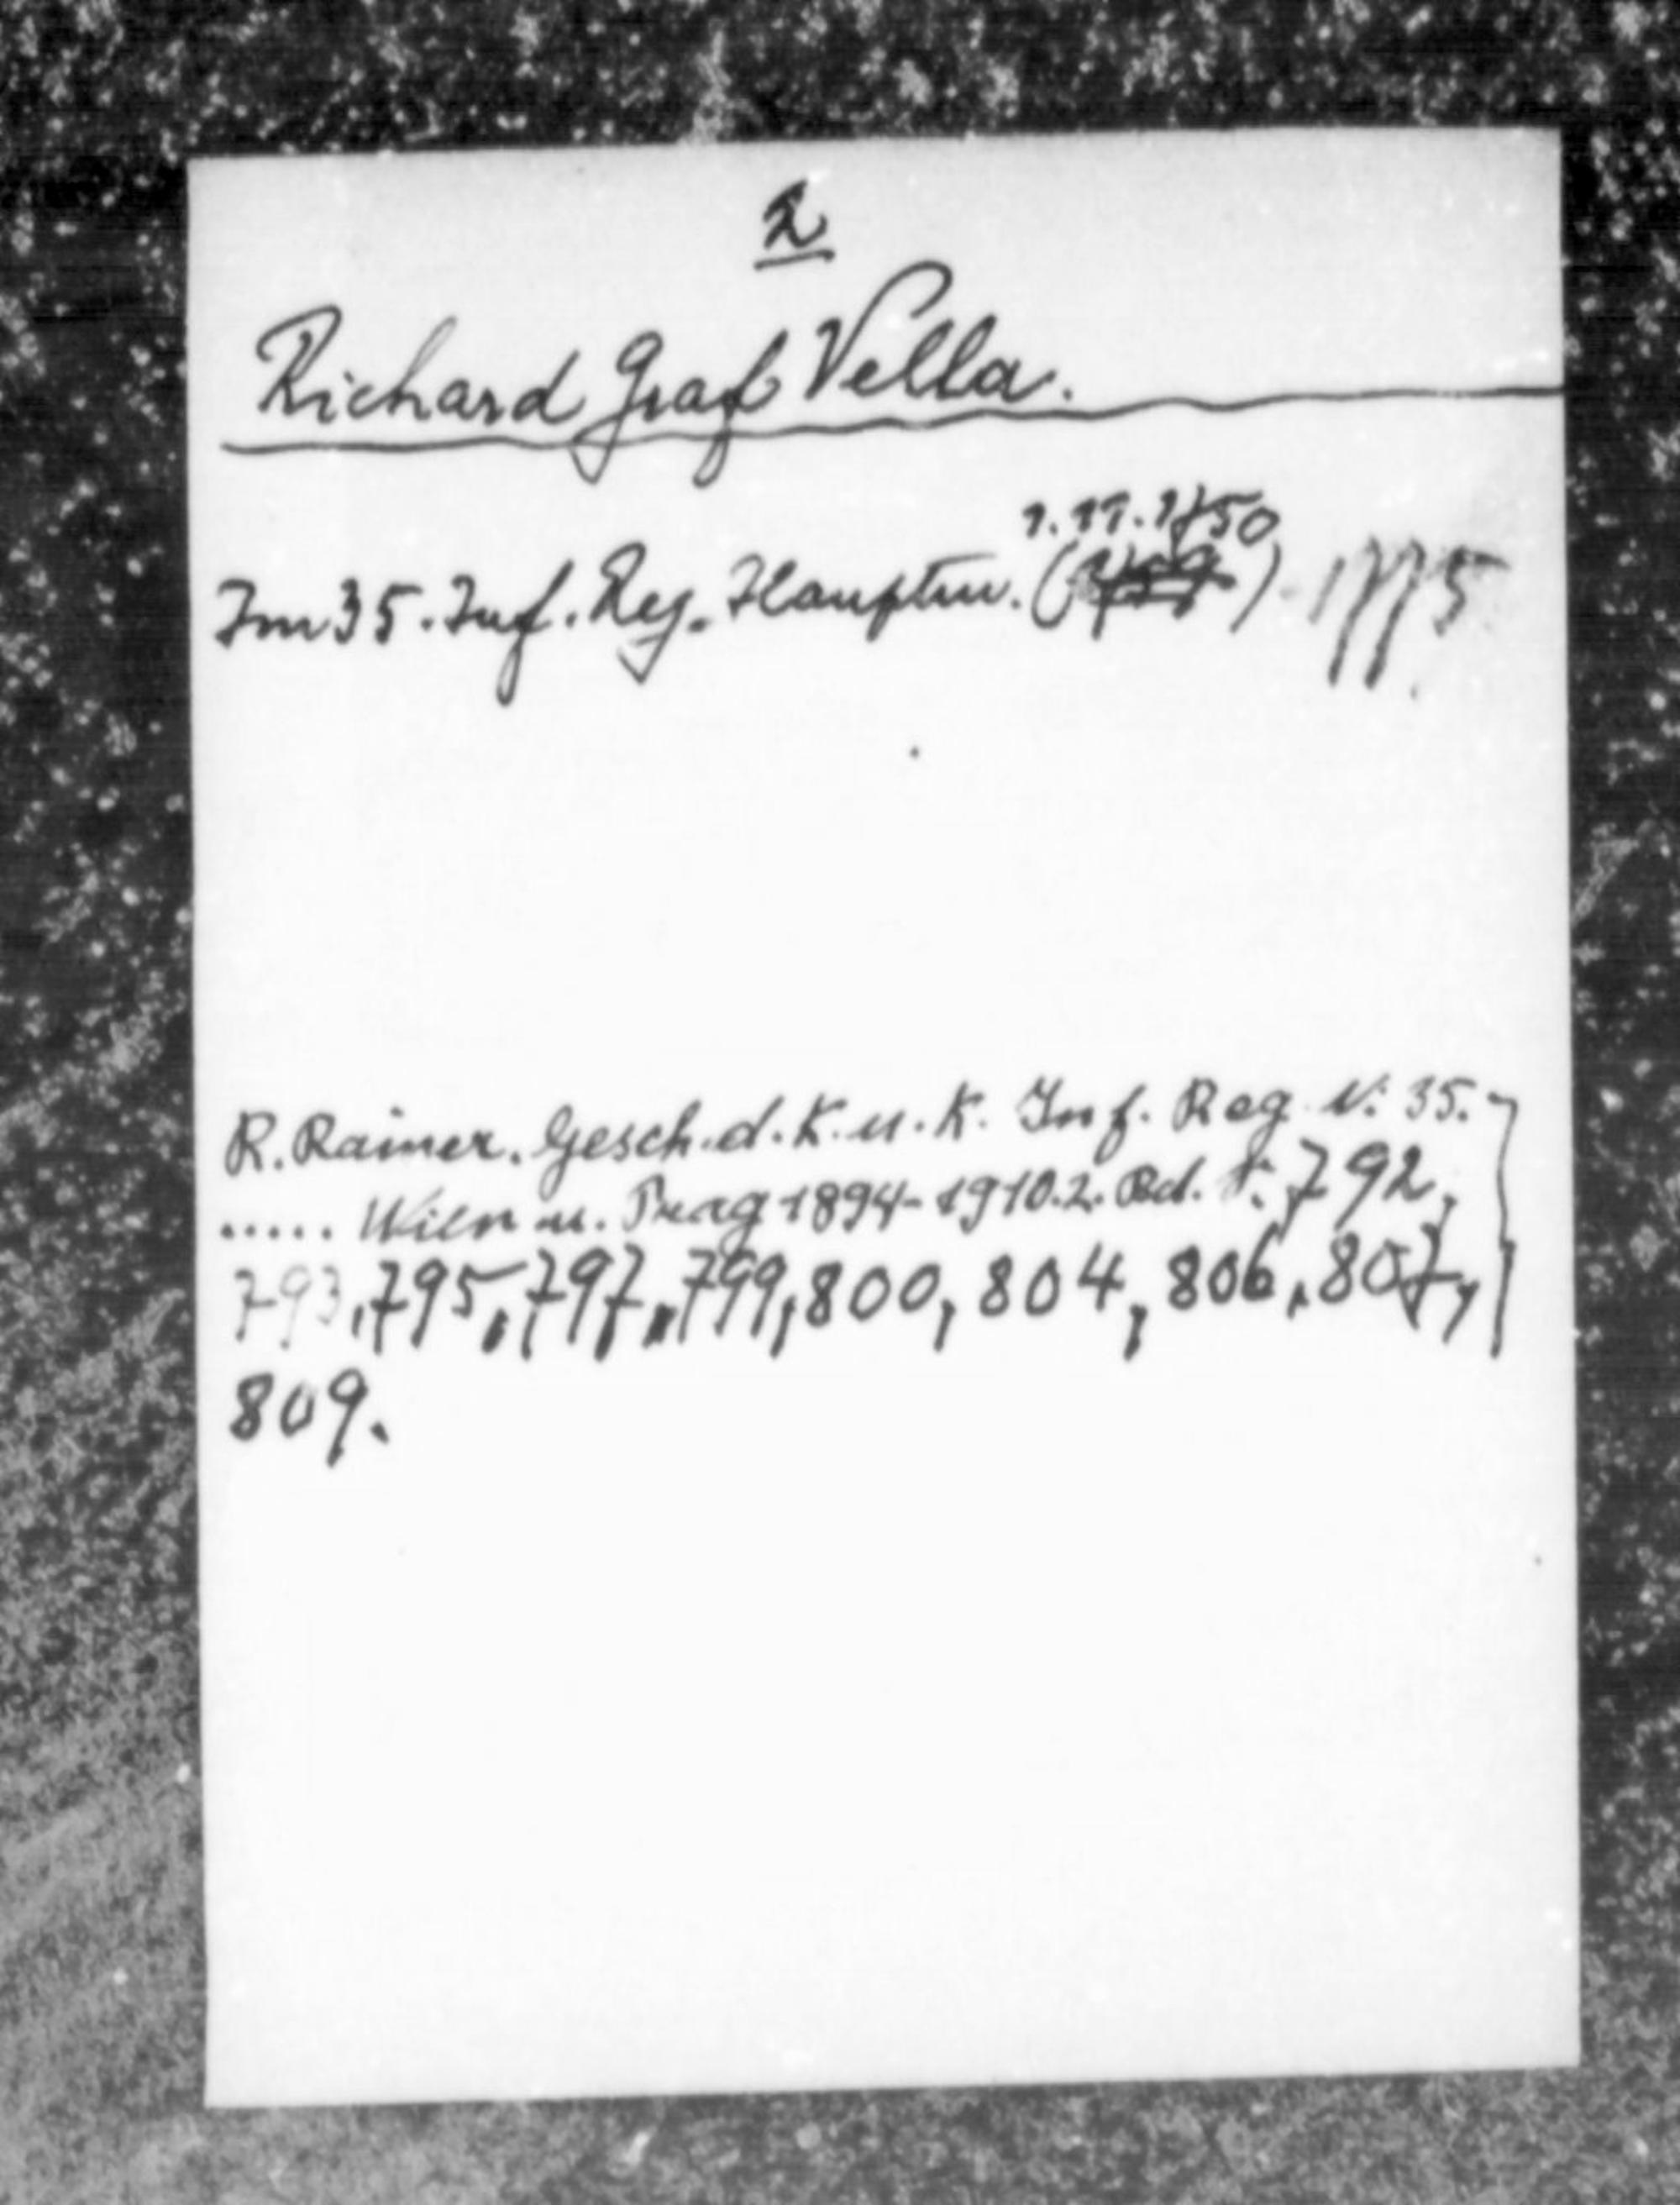 2
Richard Graf Vella.
1.11.1750
Im 35. Inf. Reg. Hauptm. ( ) - 1775
R. Rainer. Gesch. d. K. u. K. Inf. Reg. N: 35.
..... Wien u. Prag 1894-1910. 2. Bd. S: 792,
793, 795, 797, 799, 800, 804, 806, 807,
809.